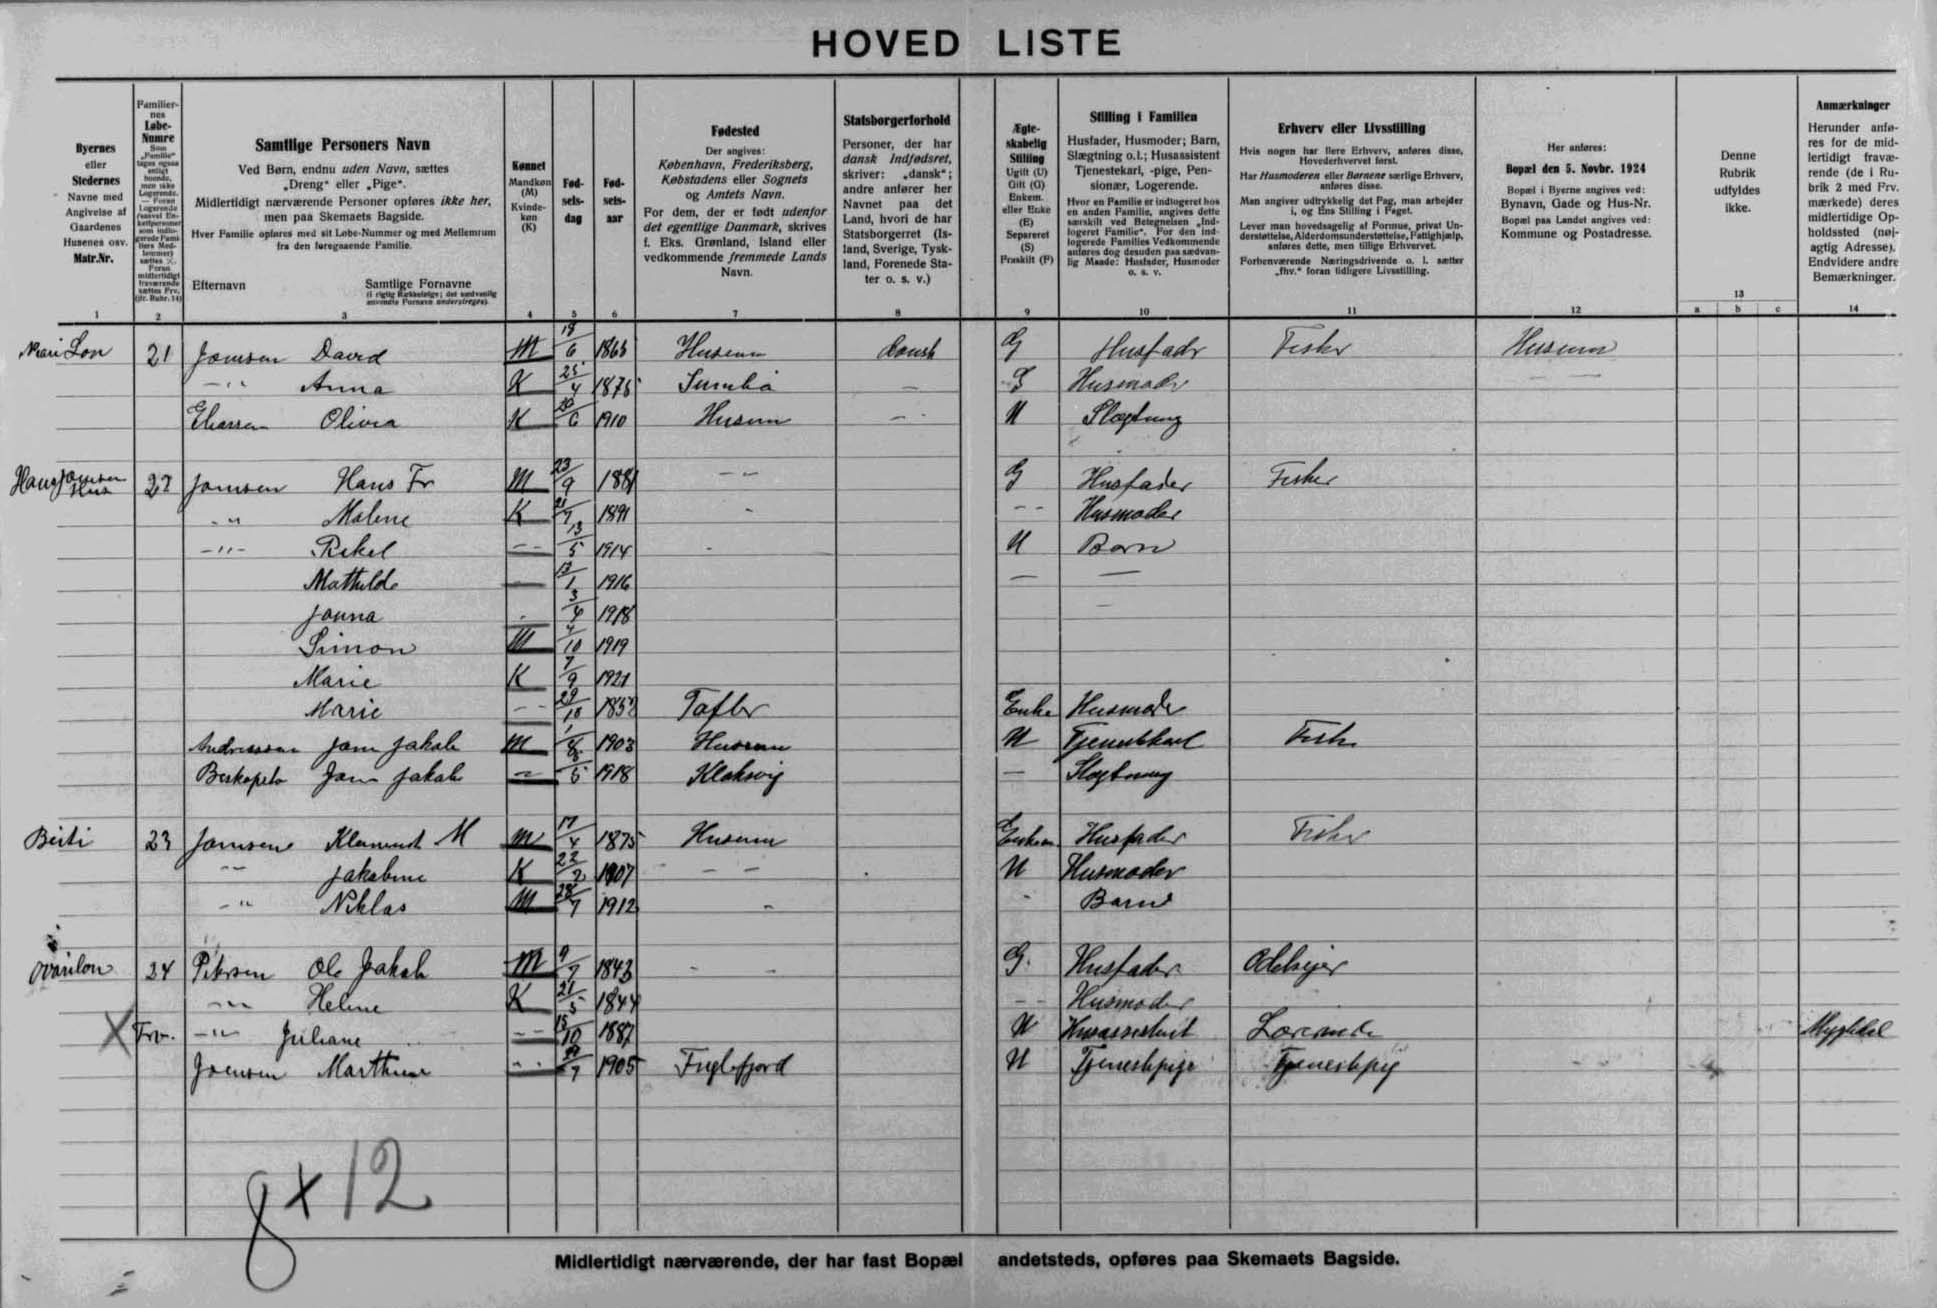 HOVED LISTE
Byernes
eller
Stedernes
Navne med
Angivelse af
Gaardenes
Husenes osv.
Matr.Nr.
1
Familier-
nes
Løbe-
Numre
2
Samtlige Personers Navn
Ved Børn, endnu uden Navn, sættes
„Dreng“ eller „Pige“.
Midlertidigt nærværende Personer opføres ikke her,
men paa Skemaets Bagside.
Hver Familie opføres med sit Løbe-Nummer og med Mellemrum
fra den foregaaende Familie.
Efternavn Samtlige Fornavne
(i rigtig Rækkefølge; det sædvanlig
anvendte Fornavn understreges).
3
Kønnet
Mandkøn
(M)
Kvinde-
køn
(K)
4
Fød-
sels-
dag
5
Fød-
sels-
aar
6
Fødested
Der angives:
København, Frederiksberg,
Købstadens eller Sognets
og Amtets Navn.
For dem, der er født udenfor
det egentlige Danmark, skrives
f. Eks. Grønland, Island eller
vedkommende fremmede Lands
Navn.
7
Statsborgerforhold
Personer, der har
dansk Indfødsret,
skriver: „dansk“;
andre anfører her
Navnet paa det
Land, hvori de har
Statsborgerret (Is-
land, Sverige, Tysk-
land, Forenede Sta-
ter o. s. v.)
8
Ægte-
skabelig
Stilling
Ugift (U)
Gift (G)
Enkem.
eller Enke
(E)
Separeret
(S)
Fraskilt (F)
9
Stilling i Familien
Husfader, Husmoder; Barn,
Slægtning o.l.; Husassistent
Tjenestekarl, -pige, Pen-
sionær, Logerende.
Hvor en Familie er indlogeret hos
en anden Familie, angives dette
særskilt ved Betegnelsen „Ind-
logeret Familie“. For den ind-
logerede Families Vedkommende
anføres dog desuden paa sædvan-
lig Maade: Husfader, Husmoder
o. s. v.
10
Erhverv eller Livsstilling
Hvis nogen har flere Erhverv, anføres disse,
Hovederhvervet først.
Har Husmoderen eller Børnene særlige Erhverv,
anføres disse.
Man angiver udtrykkelig det Fag, man arbejder
i, og Ens Stilling i Faget.
Lever man hovedsagelig af Formue, privat Un-
derstøttelse, Alderdomsunderstøttelse, Fattighjælp,
anføres dette, men tillige Erhvervet.
Forhenværende Næringsdrivende o. l. sætter
„fhv.“ foran tidligere Livsstilling.
11
Her anføres:
Bopæl den 5. Novbr. 1924
Bopæl i Byerne angives ved:
Bynavn, Gade og Hus-Nr.
Bopæl paa Landet angives ved:
Kommune og Postadresse.
12
Denne
Rubrik
udfyldes
ikke.
13
a b c
Anmærkninger
Herunder anfø-
res for de mid-
lertidigt fravæ-
rende (de i Ru-
brik 2 med Frv.
mærkede) deres
midlertidige Op-
holdssted (nøj-
agtig Adresse).
Endvidere andre
Bemærkninger.
14
21 Joensen David M 18/6 Husum dansk G Husfadr Fisker Husum
-"- Anna K 25/4 1875 Sumbø — G Husmodr
Eliassen Olivia K 20/6 1910 Husum — U Slægtning
Hans Joensen
Hus
22 Joensen Hans Fr M 23/9 1881 -"- G Husfader Fisker
-"- Malene K 21/7 1891 -- Husmoder
-"- Rikel -- 13/5 1914 U Barn
Mathilde — 13/1 1916 — —
Jonna 3/4 1918 —
Simon M 4/10 1919
Marie K 7/9 1921
Marie -- 29/10 Enke Husmodr
Andreassen Jom Jakob M 1903 Husum U Tjenestekarl Fisker
Jom Jakob 1918 Klaksvig — Slægtning
Beiti 23 Joensen Klemint M M 17/4 1875 Husum Enkem Husfader Fisker
-"- Jakobine K 22/2 1907 -- U Husmoder
-"- Niklas M 28/7 1912 - Barn
24 Petersen Ole Jakob M 9/7 1843 - - G. Husfader
-"- Helene K 21/5 1844 -- Husmoder
X Frv. -"- Juliane -- 15/10 1887 U Husassistent Lærerinde Mygledal
Joensen Marthine -- 1905 Fuglefjord U Tjenestepige Tjenestepig
8 + 12
Midlertidigt nærværende, der har fast Bopæl andetsteds, opføres paa Skemaets Bagside.